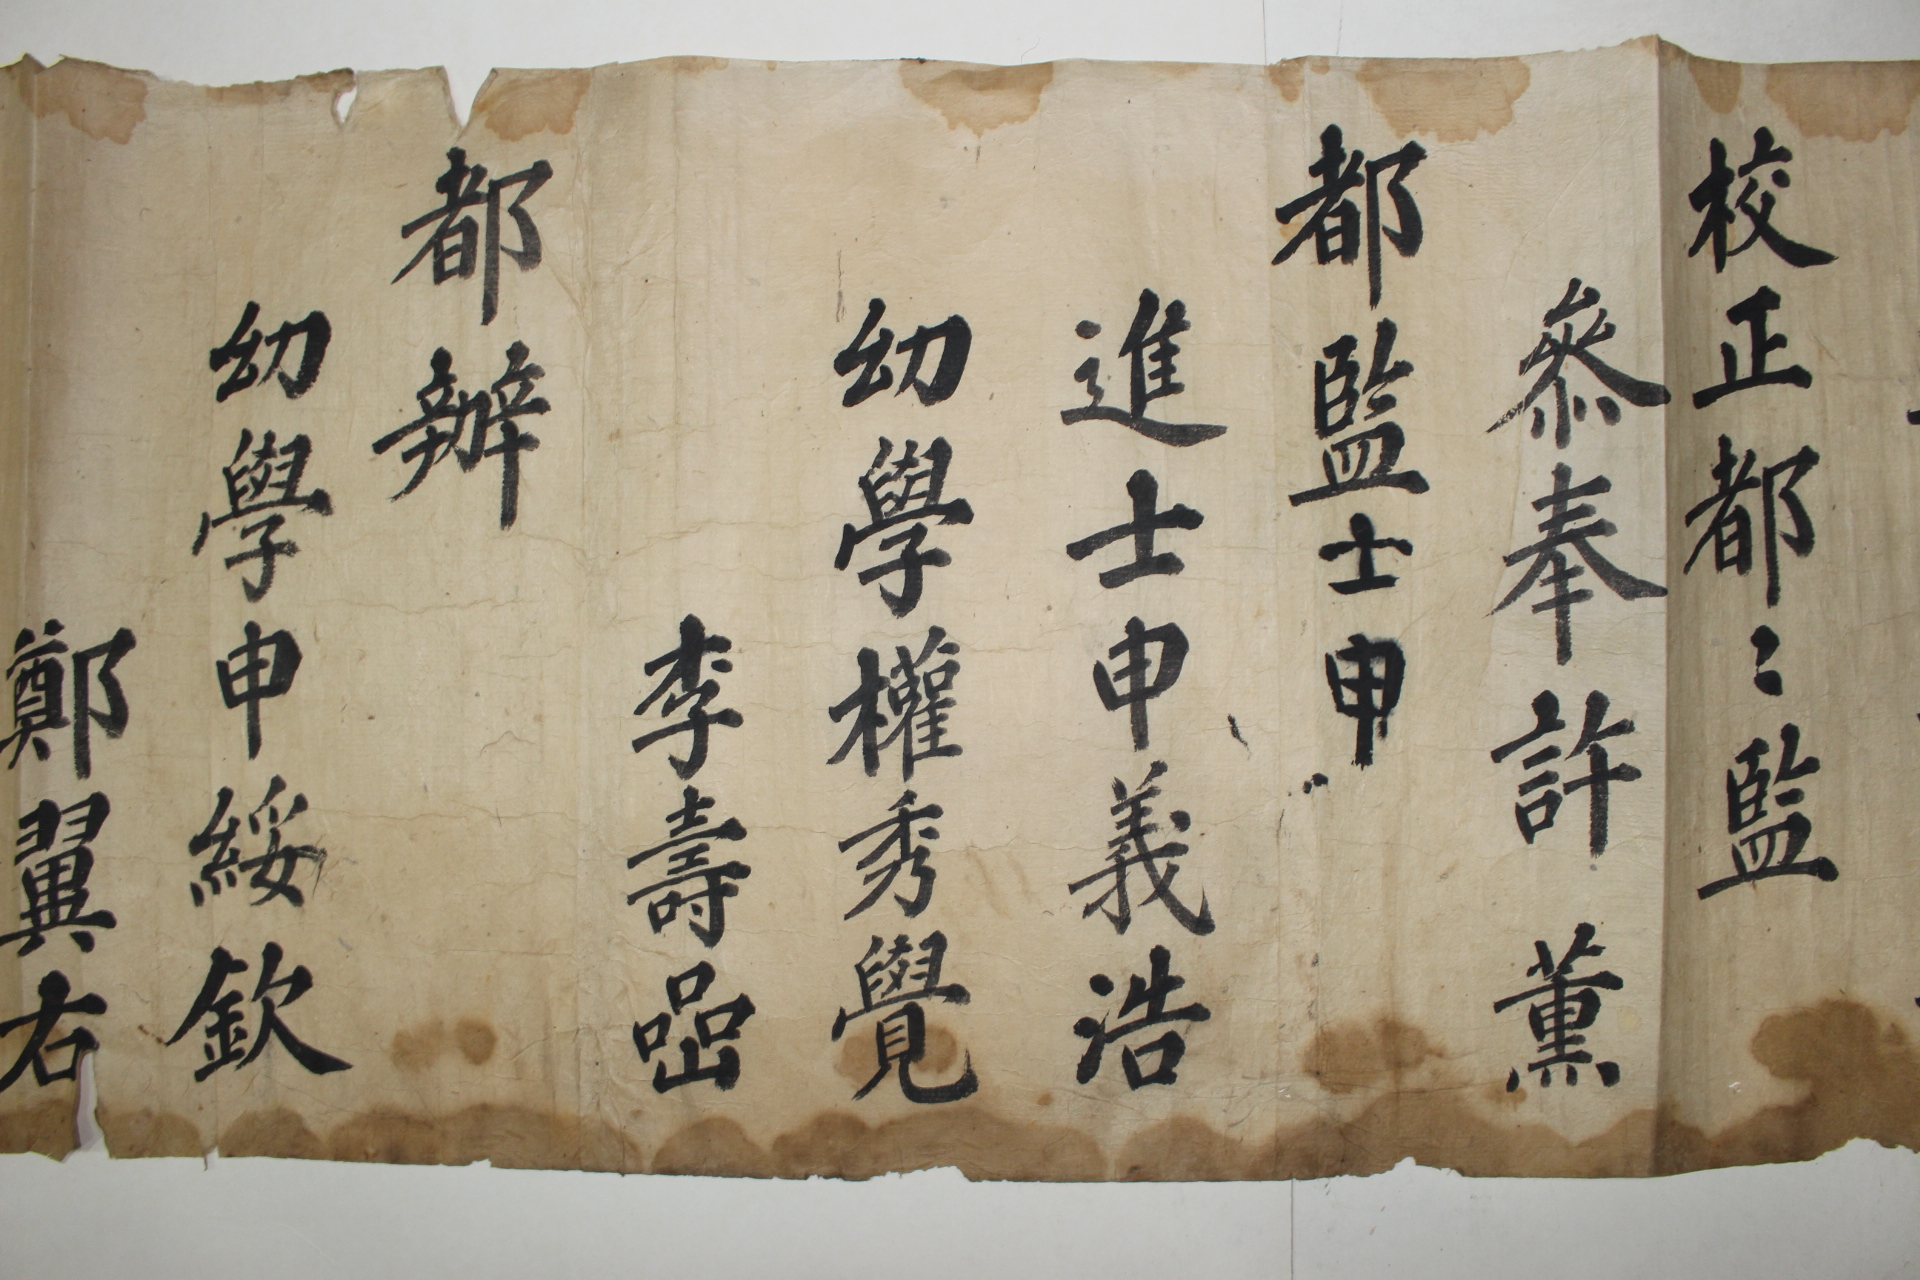 校正都〻監
叅奉許薰
都監士申
進士申義浩
幼學權秀覺
李壽喦
都辦
幼學申綏欽
鄭翼右